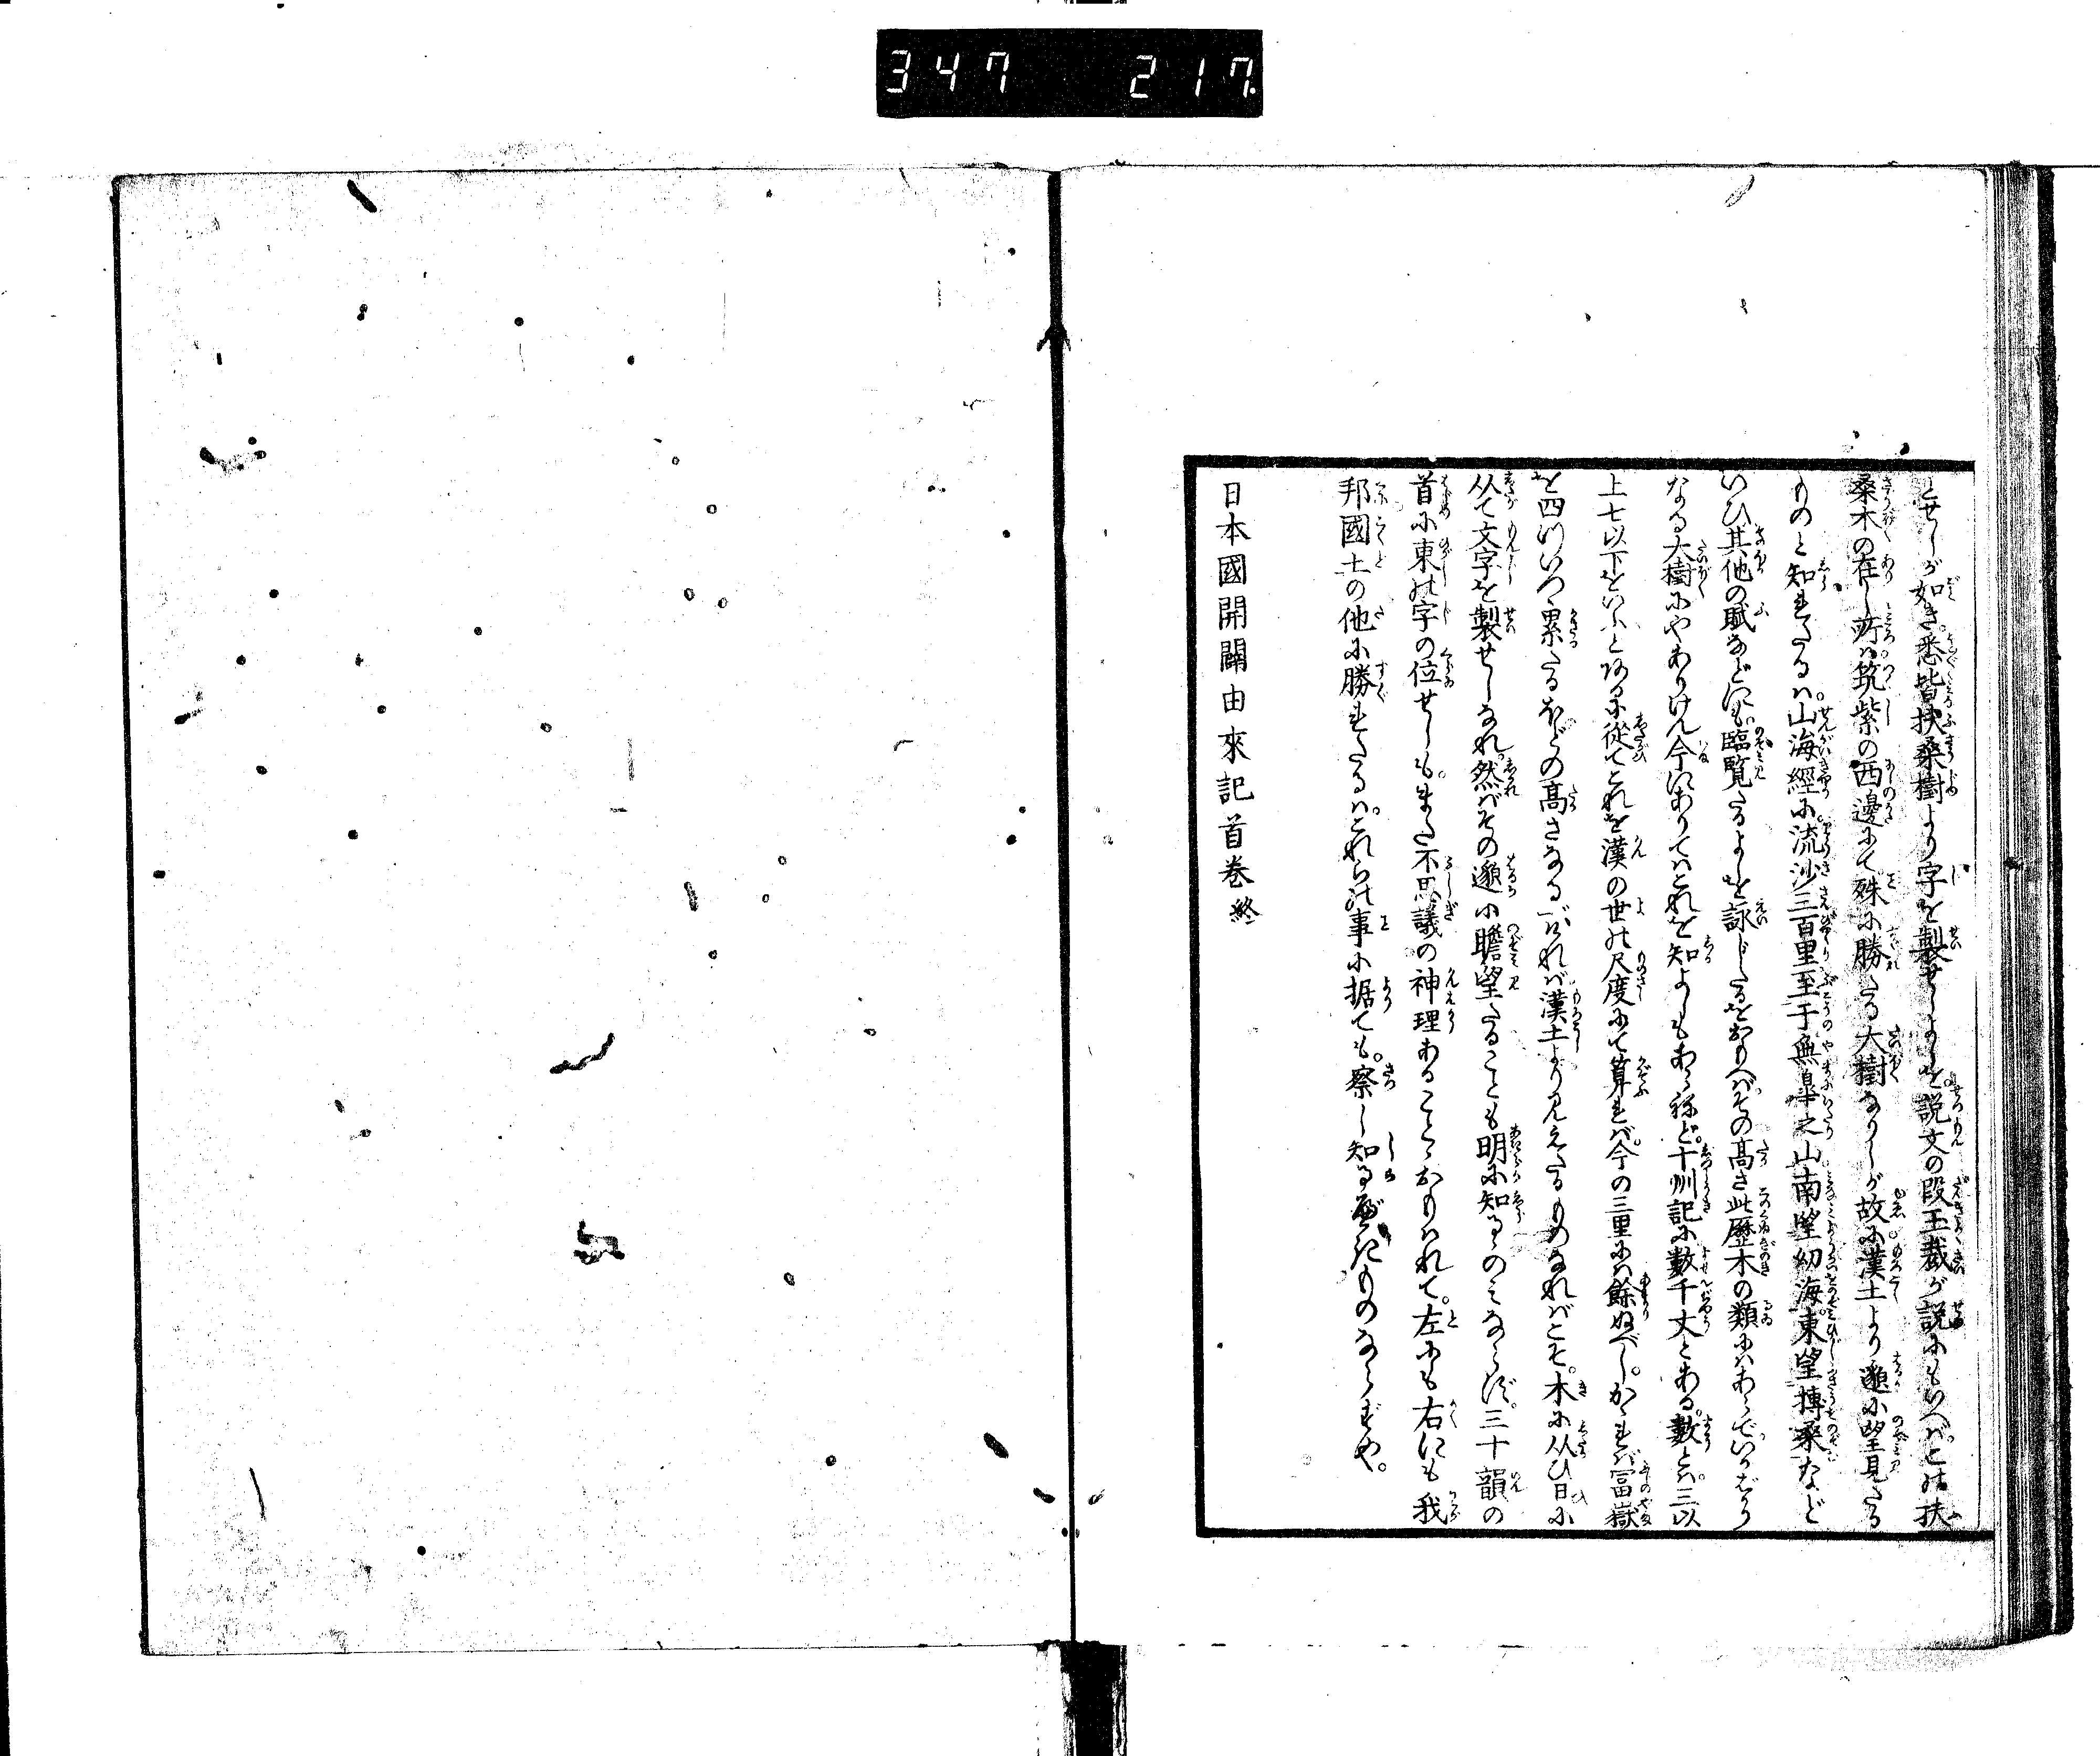 347 217
とせしが如き。悉皆扶桑樹より字を製せしよしを。説文の段玉裁が説にもいへバ。この扶
桑木の在し所ハ。筑紫の西邊にて。殊に勝れたる大樹なりしが故に。漢土より遙に望見たる
ものと知れたるハ。山海經に。流沙三百里至于無皐之山南望幼海。東望榑桑など
いひ其他の賦などにも。臨覽たるよしを詠じたるをおもへバ。その高さ此歴木の類にハあらで。いかばかり
なる大樹にやありけん今にありてハこれを知よしもあらねど。十洲記に數千丈とある。數とハ。三以
上七以下をいふとあるに從てこれを漢の世の尺度にて算れバ。今の三里にハ餘ぬべし。かゝれバ冨嶽
を四ツいつゝ累たるほどの高さなるべけれバ漢土より見えたるものなれバこそ。木に从ひ日に
从て文字を製せしなれ。然バその遙に瞻望たることも明に知るゝのミならず。三十韻の
首に東の字の位せしも。また不思議の神理あることゝおもハれて。左にも右にも我
邦國土の他に勝れたるハ。これらの事に据ても。察し知るべきものならずや。
日本國開闢由來記首卷終